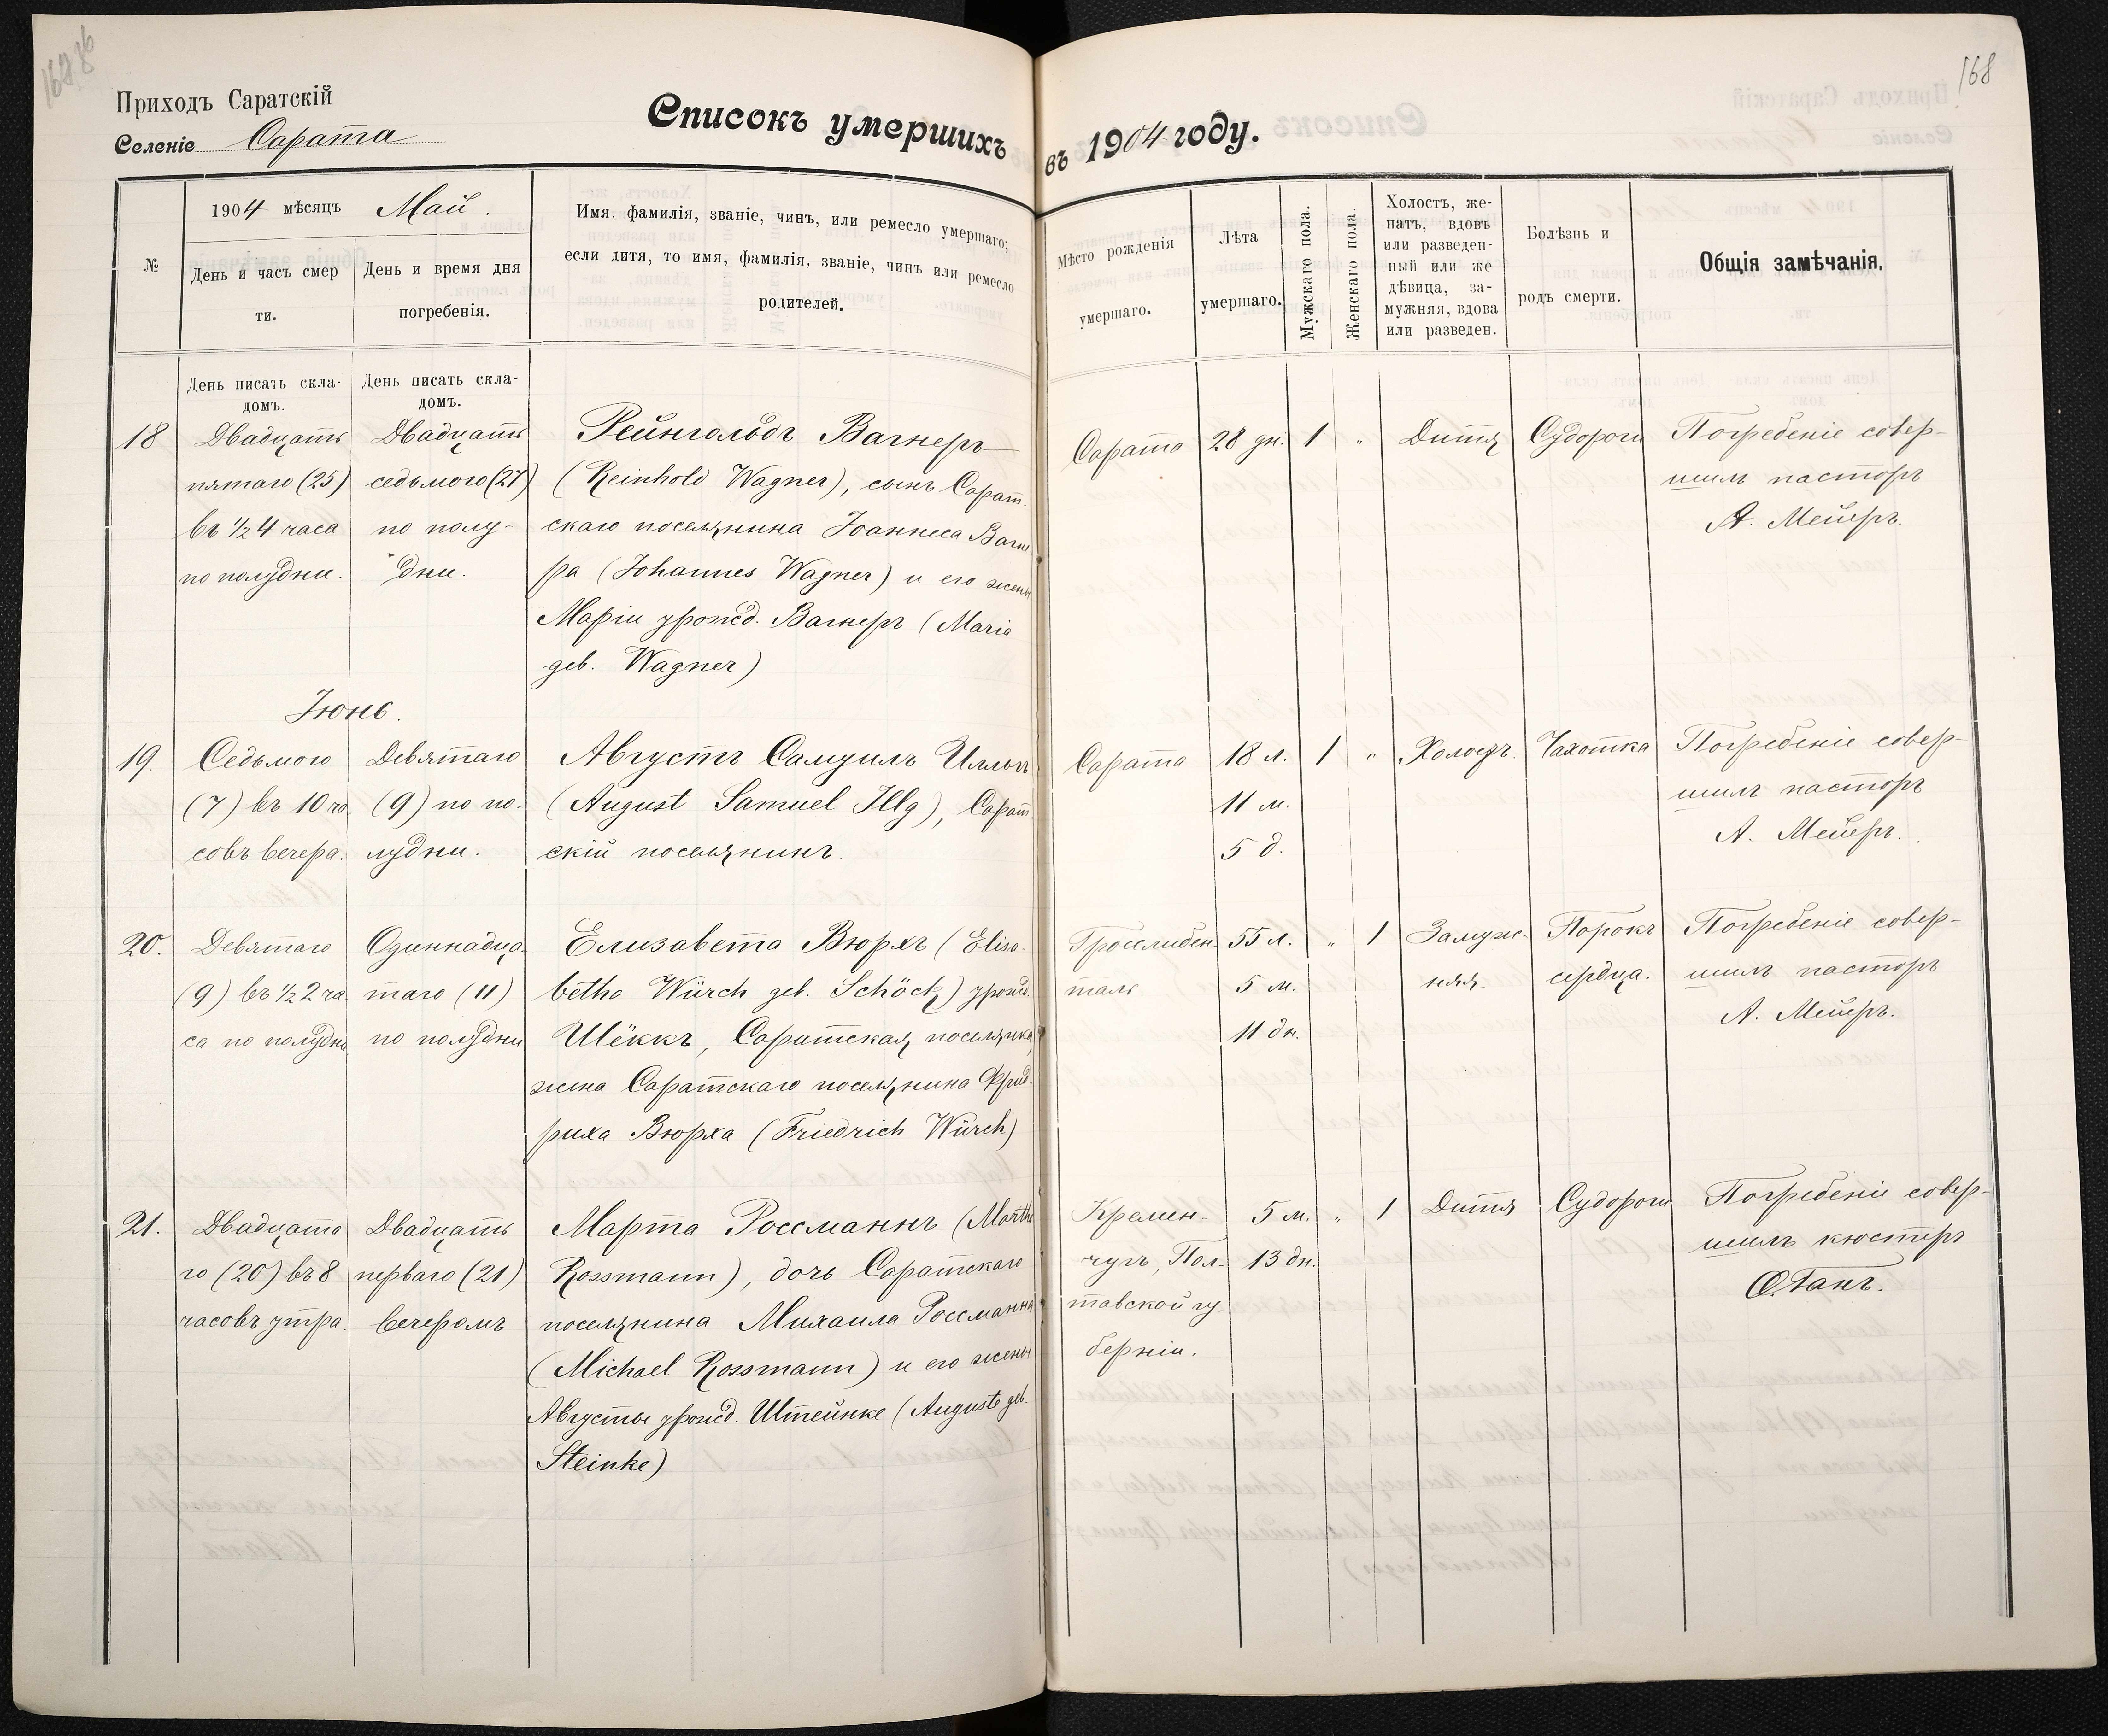 168
Приходъ Саратскій
Селеніе Сарата
Списокъ умершихъ въ 1904 году.
№
1904 мѣсяцъ Май.
День и часъ смер
ти.
День и время дня
погребенія.
Имя, фамилія, званіе, чинъ, или ремесло умершаго;
если дитя, то имя, фамилія, званіе, чинъ или ремесло
родителей.
Мѣсто рожденія
умершаго.
Лѣта
умершаго.
Мужскаго пола.
Женскаго пола.
Холостъ, же-
натъ, вдовъ
или разведен-
ный или же
дѣвица, за-
мужняя, вдова
или разведен.
Болѣзнь и
родъ смерти.
Общія замѣчанія.
День писать скла-
домъ.
День писать скла-
домъ.
18
Двадцать
пятаго (25)
въ 1/2 4 часа
по полудни.
Двадцать
седьмого (27)
по полу-
дни.
Рейнгольдъ Вагнеръ
(Reinhold Wagner), сынъ Сарат-
скаго поселянина Іоаннеса Вагне-
ра (Johannes Wagner) и его жены
Маріи урожд. Вагнеръ (Maria
geb. Wagner)
Сарата
28 дн.
1
"
Дитя
Судороги
Погребеніе совер-
шилъ пасторъ
А. Мейеръ.
Іюнь.
19.
Седьмого
(7) въ 10 ча-
совъ вечера.
Девятаго
(9) по по-
лудни.
Августъ Самуилъ Илльгъ
(August Samuel Illg), Сарат-
скій поселянинъ.
Сарата
18 л.
11 м.
5 д.
1
"
Холостъ.
Чахотка
Погребеніе совер-
шилъ пасторъ
А. Мейеръ.
20.
Девятаго
(9) въ 1/2 2 ча-
са по полудни
Одиннадца-
таго (11)
по полудни
Елизавета Вюрхъ (Elisa-
betha Würch geb. Schöck) урожд.
Шёккъ, Саратская поселянка,
жена Саратскаго поселянина Фрид-
риха Вюрха (Friedrich Würch)
Гросслибен-
таль
55 л.
5 м.
11 дн.
"
1
Замуж-
няя.
Порокъ
сердца.
Погребеніе совер-
шилъ пасторъ
А. Мейеръ.
21.
Двадцата-
го (20) въ 8
часовъ утра.
Двадцать
перваго (21)
вечеромъ
Марта Россманнъ (Martha
Rossmann), дочь Саратскаго
поселянина Михаила Россманна
(Michael Rossmann) и его жены
Августы урожд. Штейнке (Auguste geb.
Steinke)
Кремен-
чугъ, Пол-
тавской гу-
берніи.
5 м.
13 дн.
"
1
Дитя
Судороги
Погребеніе совер-
шилъ кюстеръ